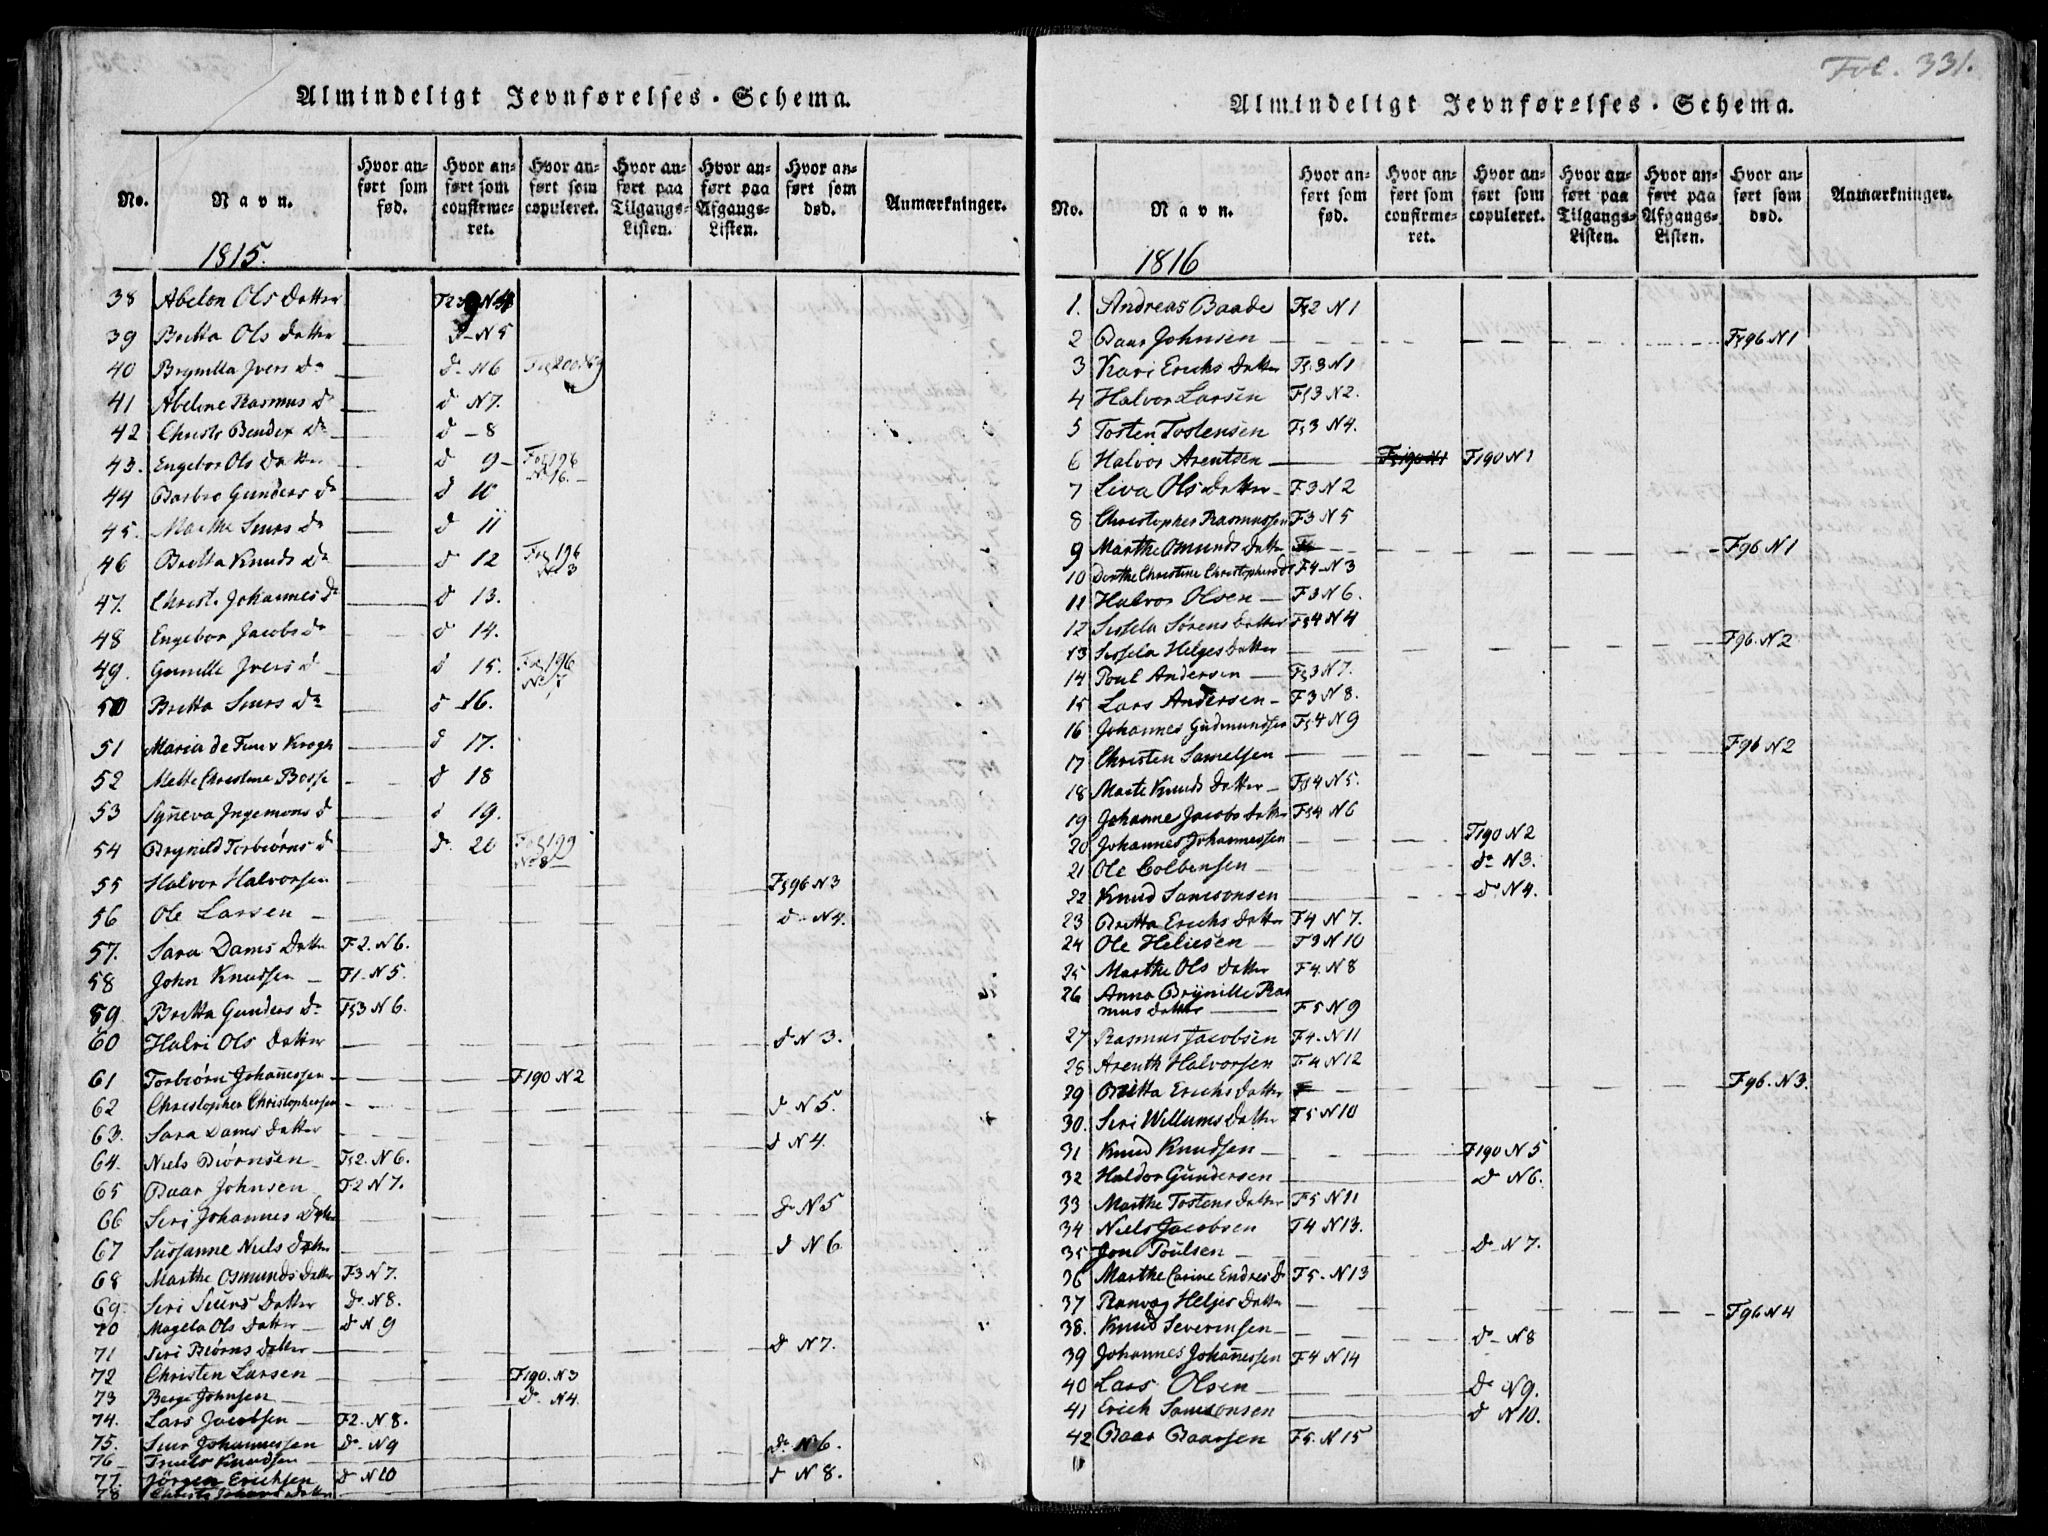 Fol. 331.
Almindeligt Jevnførelses-Schema.
No. Navn. Hvor anført som fød. Hvor anført som confirmeret. Hvor anført som copuleret. Hvor anført paa Tilgangs-Listen. Hvor anført paa Afgangs-Listen. Hvor anført som død. Anmærkninger.
1815.
38 Abelon Ols Datter N 4
39 Britta Ols datter d - N 5
40 Brynilla Ivers Dr d N6
41 Abelene Rasmus dr d N 7.
42 Christi Bendix Dr d - 8
43. Engebor Ols Datter d 9 - Fol 196 No 6.
44 Barbro Gunders dr d 10
45. Marthe Siurs dr d 11
46 Britta Knuds Dr d 12 Fol 196 No 3
47. Christ. Johannes dr d 13.
48 Engebor Jacobs dr d 14.
49. Gunille Ivers d d 15. Fol 196
50 Britta Siurs Dr d 16.
51 Maria de Fine Krogh d 17.
52 Mette Christine Bosse d 18
53 Syneva Ingemons d d 19.
54 Brynild Torbiørns dr d. 20 Fol 199 No 8
55 Halvor Halvorsen F 96 N 3
56 Ole Larsen d - N 4.
57. Sara Dams Datter F 2. N 6.
58 John Knudsen F 1. N 5.
59. Britta Gunders Dr F 3 N 6.
60 Halvi Ols Datter d N 3.
61 Torbiørn Johannessen F 190 N 2
62 Christopher Christophersen d N 5.
63. Sara Dams Datter d N 4.
64. Niels Biørnsen F 2. N 6.
65 Baar Johnsen F 2 N 7.
66 Seri Johannes Datter d N 5
67 Sussanne Niels Datter d N 6
68 Marthe Osmunds Datter F 3 N 7.
69. Seri Siurs Datter d. N 8.
70 Magela Ols Datter d N 9
71 Siri Biørns datter d N 7.
72 Christen Larsen F 190. N 3
73 Berge Johnsen d. N 4
74. Lars Jacobsen F 2. N 8.
75. Siur Johannessen d. N 9 d. N 6.
76 Truels Knudsen
77. Jörgen Erichsen d N 10 d N 8.
78 Christi Johans Datter
Almindeligt Jevnførelses-Schema.
No. Navn. Hvor anført som fød. Hvor anført som confirmeret. Hvor anført som copuleret. Hvor anført paa Tilgangs-Listen. Hvor anført paa Afgangs-Listen. Hvor anført som død. Anmærkninger.
1816
1. Andreas Baade F 2 N 1
2 Baar Johnsen F 96 N 1
3 Kari Erichs Datter F 3 N 1
4 Halvor Larsen F 3 N 2.
5 Tosten Tostensen F 3 N 4.
6 Halvor Arentsen F 190 N 1 F 190 N 1
7 Liva Ols Datter F 3 N 2
8 Christopher Rasmussen F 3 N 5
9 Marthe Osmunds datter F F 96 N 1
10 Dorthe Christine Christophersd F 4 N 3
11 Halvor Olsen F 3 N 6.
12 Sissela Sörens datter F 4 N 4
13 Sissela Helges datter F 96. N 2
14 Poul Andersen F 3 N 7.
15 Lars Andersen F 3 N 8.
16 Johannes Gudmundsen F 4 N 9
17 Christen Samelsen F 96 N 2
18 Marte Knuds Datter F 4 N 5.
19 Johanne Jacobs datter F 4 N 6
20 Johannes Johannessen F 190 N 2
21 Ole Colbensen d. N 3.
22 Knud Samsonsen d. N 4.
23 Britta Erichs datter F 4 N 7.
24 Ole Heliesen F 3 N 10
25 Marthe Ols Datter F 4. N 8
26 Anna Brynille Rasmus datter F 5 N 9
27 Rasmus Jacobsen F 4. N 11
28 Arenth Halvorsen F 4 N 12
29 Britta Erichs datter F F 96. N 3.
30. Siri Willums Datter F 5 N 10
31 Knud Knudsen F 190 N 5
32 Haldor Gundersen d N 6.
33 Marthe Tostens datter F 5 N 11
34 Niels Jacobsen F 4 N 13.
35 Jon Poulsen d - N 7.
36 Marthe Carine Endres d F 5. N 13
37 Ranvog Heljes datter F 96 N 4
38. Knud Severinsen d - N 8
39 Johannes Johannessen F 4 N 14
40 Lars Olsen d N 9.
41 Erich Samsonsen d N 10.
42 Baar Baarsen F 5. N 15